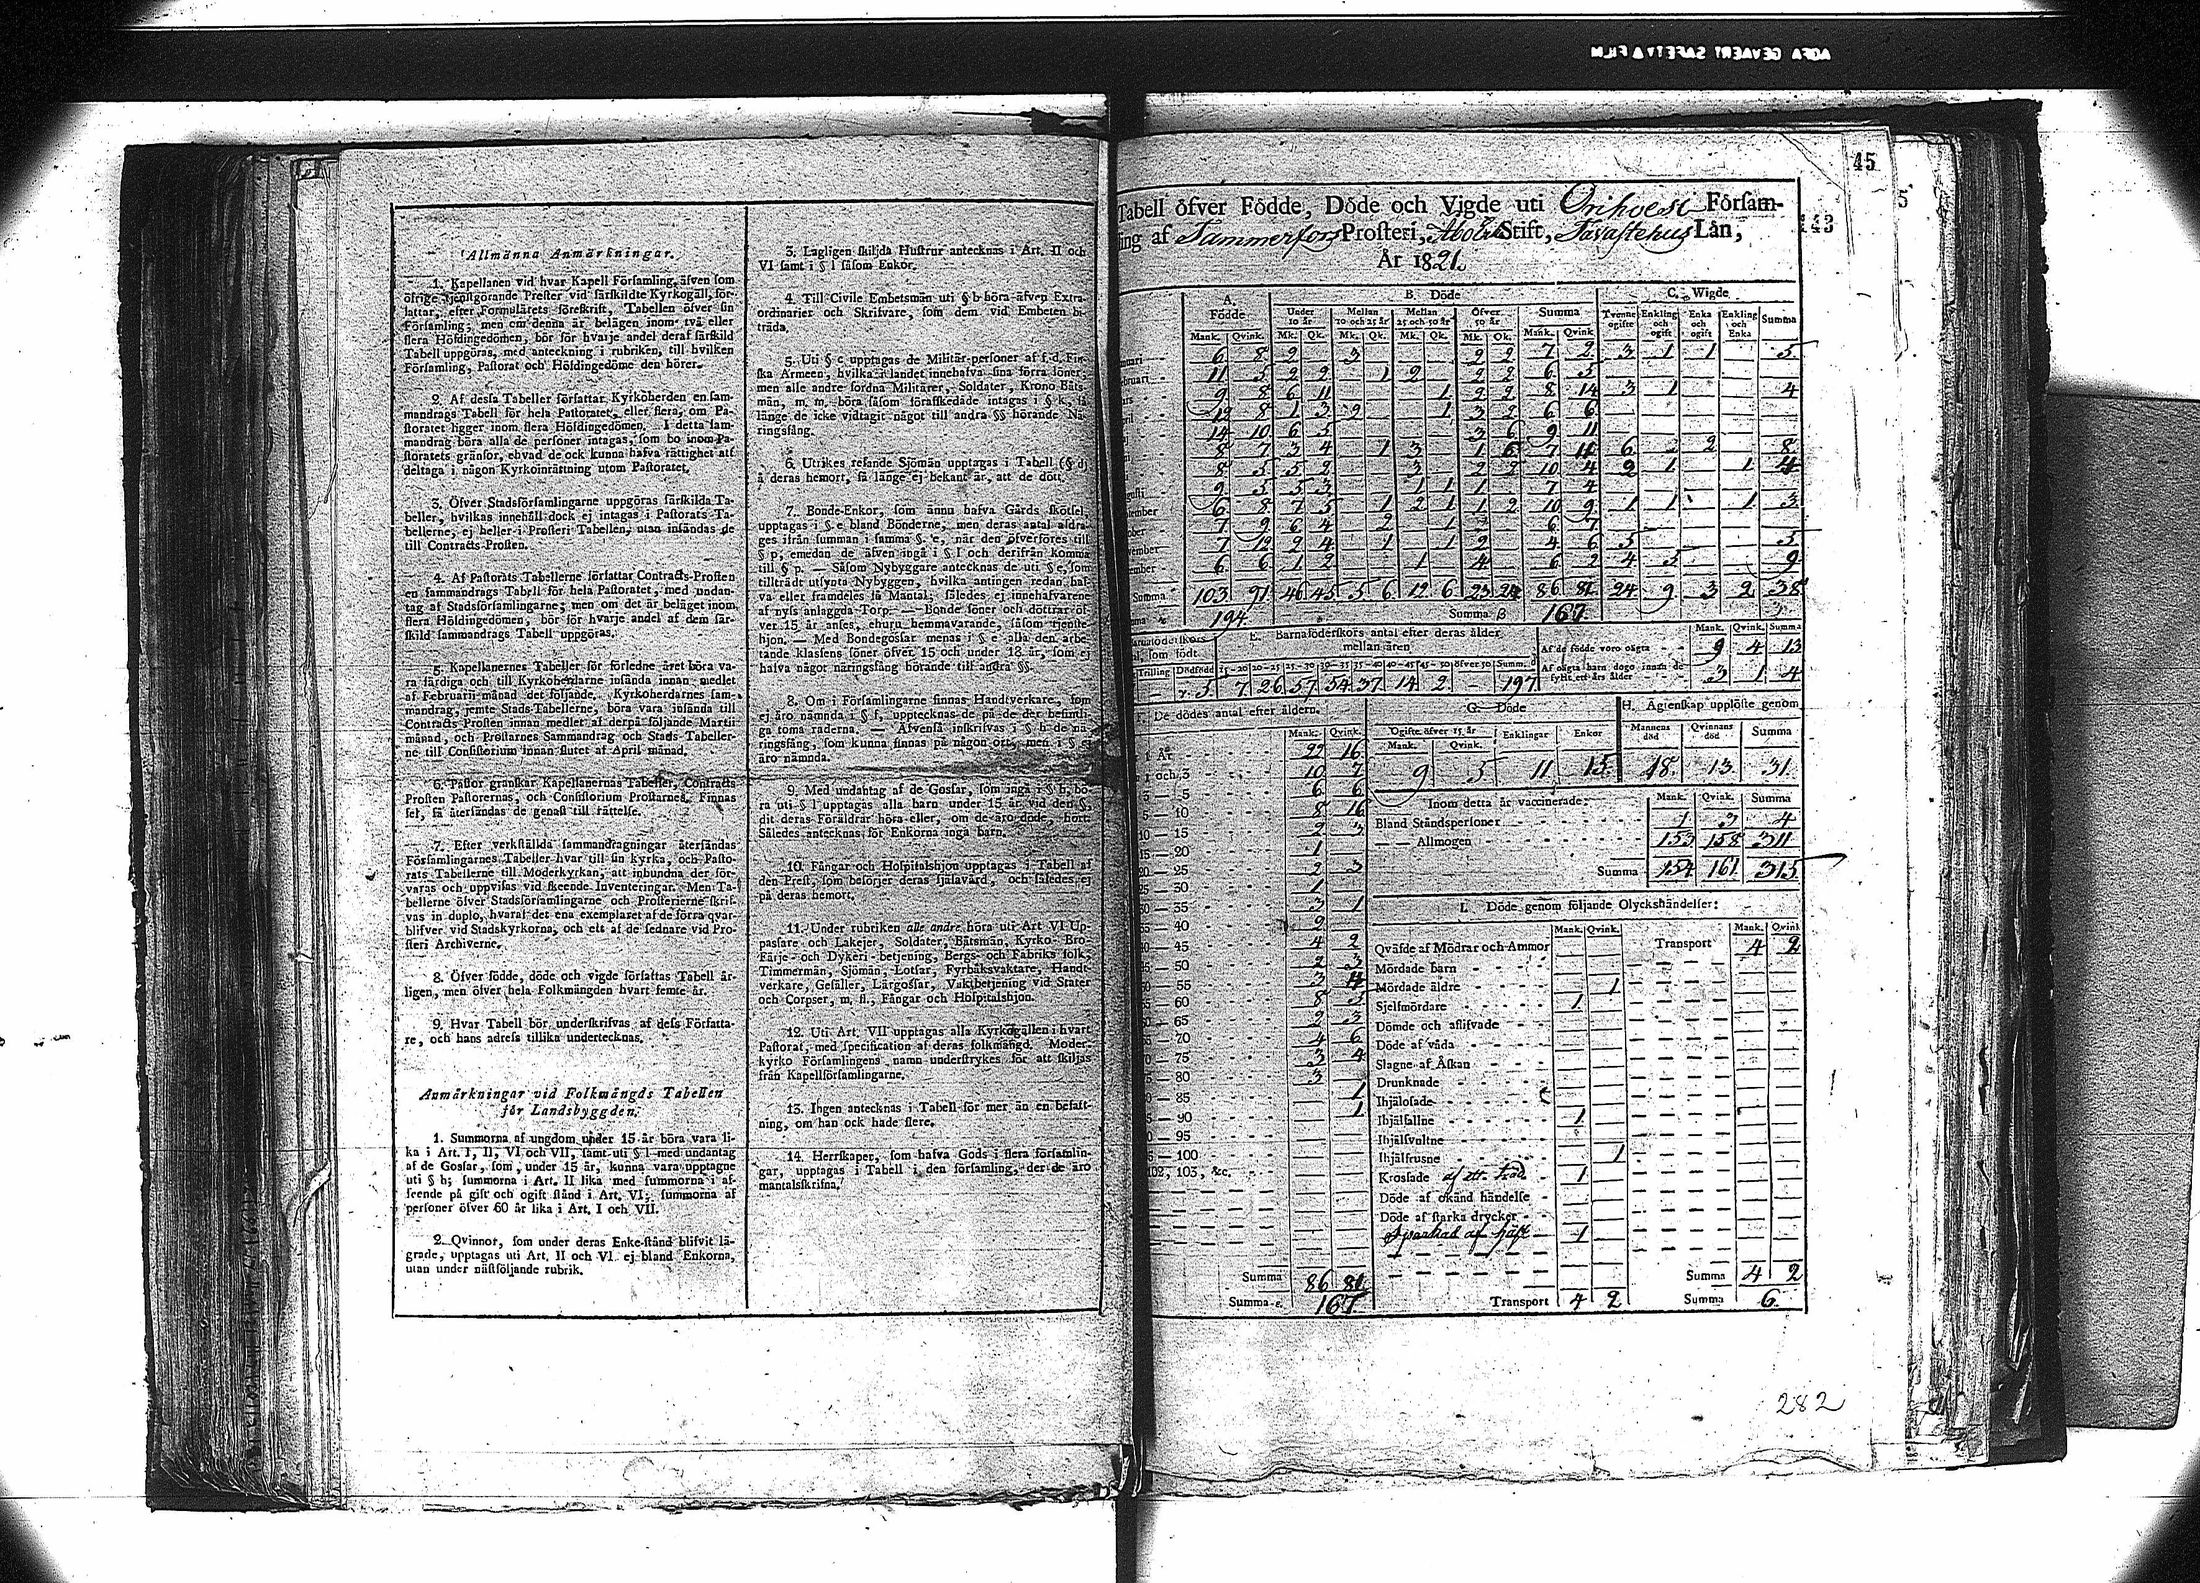 AGFA GEVAERT SAFETY FILM
45
5
143
Allmänna Anmärkningar.
1. Kapellanen vid hvar Kapell Församling, äfven som
öfrige tjenstgörande Prester vid särskildte Kyrkogäll, för-
fattar, efter Formulärets föreskrift, Tabellen öfver sin
Församling; men om denna är belägen inom två eller
flera Höfdingedömen, bör för hvarje andel deraf särskild
Tabell uppgöras, med anteckning i rubriken, till hvilken
Församling, Pastorat och Höfdingedöme den hörer.
2. Af dessa Tabeller författar Kyrkoherden en sam-
mandrags Tabell för hela Pastoratet, eller flera, om Pa-
storatet ligger inom flera Höfdingedömen. I detta sam-
mandrag böra alla de personer intagas, som bo inom Pa-
storatets gränsor, ehvad de ock kunna hafva rättighet att
deltaga i någon Kyrkoinrättning utom Pastoratet.
3. Öfver Stadsförsamlingarne uppgöras särskilda Ta-
beller, hvilkas innehåll dock ej intages i Pastorats Ta-
bellerne, ej heller i Prosteri Tabellen, utan insändas de
till Contracts-Prosten.
4. Af Pastorats Tabellerne författar Contracts-Prosten
en sammandrags Tabell för hela Pastoratet, med undan-
tag af Stadsförsamlingarne; men om det är beläget inom
flera Höfdingedömen, bör för hvarje andel af dem sär-
skild sammandrags Tabell uppgöras.
5. Kapellanernes Tabeller för förledne året böra va-
ra färdiga och till Kyrkoherdarne insända innan medlet
af Februarii månad det följande. Kyrkoherdarnes sam-
mandrag, jemte Stads-Tabellerne, böra vara insända till
Contracts Prosten innan medlet af derpå följande Martii
månad, och Prostarnes Sammandrag och Stads Tabeller-
ne till Consistorium innan slutet af April månad.
6. Pastor granskar Kapellanernas Tabeller, Contracts
Prosten Pastorernas, och Consistorium Prostarnes. Finnas
fel, så återsändas de genast till rättelse.
7. Efter verkställda sammandragningar återsändas
Församlingarnes Tabeller hvar till sin kyrka, och Pasto-
rats Tabellerne till Moderkyrkan, att inbundna der för-
varas och uppvisas vid skeende Inventeringar. Men Ta-
bellerne öfver Stadsförsamlingarne och Prosterierne skrif-
vas in duplo, hvaraf det ena exemplaret af de förra qvar-
blifver vid Stadskyrkorna, och ett af de sednare vid Pro-
steri Archiverne.
8. Öfver födde, döde och vigde författas Tabell år-
ligen, men öfver hela Folkmängden hvart femte år.
9. Hvar Tabell bör underskrifvas af dess Författa-
re, och hans adress tillika undertecknas.
Anmärkningar vid Folkmängds Tabellen
för Landsbyggden.
1. Summorna af ungdom under 15 år böra vara li-
ka i Art. I, II, VI och VII, samt uti § l med undantag
af de Gossar, som, under 15 år, kunna vara upptagne
uti § h; summorna i Art. II lika med summorna i af-
seende på gift och ogift stånd i Art. VI; summorna af
personer öfver 60 år lika i Art. I och VII.
2. Qvinnor, som under deras Enke-stånd blifvit lä-
grade, upptagas uti Art. II och VI ej bland Enkorna,
utan under nästföljande rubrik.
3. Lagligen skiljda Hustrur antecknas i Art. II och
VI samt i § l såsom Enkor.
4. Till Civile Embetsmän uti § b böra äfven Extra-
ordinarier och Skrifvare, som dem vid Embeten bi-
träda.
5. Uti § c upptagas de Militär-personer af f. d. Fin-
ska Armeen, hvilka i landet innehafva sina förra löner;
men alle andre fordna Militärer, Soldater, Krono Båts-
män, m. m. böra såsom förafskedade intagas i § k, så
länge de icke vidtagit något till andra §§ hörande Nä-
ringsfång.
6. Utrikes resande Sjömän upptagas i Tabell (§ d)
å deras hemort, så länge ej bekant är, att de dött.
7. Bonde-Enkor, som ännu hafva Gårds skötsel,
upptagas i § e bland Bönderne, men deras antal afdra-
ges ifrån summan i samma § e, när den öfverföres till
§ p, emedan de äfven ingå i § l och derifrån komma
till § p. — Såsom Nybyggare antecknas de uti § e, som
tillträdt utsynta Nybyggen, hvilka antingen redan haf-
va eller framdeles få Mantal; således ej innehafvarene
af nyss anlaggda Torp. — Bonde söner och döttrar öf-
ver 15 år anses, ehuru hemmavarande, såsom tjenste-
hjon. — Med Bondegossar menas i § e alla den arbe-
tande klassens söner öfver 15 och under 18 år, som ej
hafva något näringsfång hörande till andra §§.
8. Om i Församlingarne finnas Handtverkare, som
ej äro nämnda i § f, upptecknas de på de der befintli-
ga toma raderna. — Äfvenså inskrifvas i § h de nä-
ringsfång, som kunna finnas på någon ort, men i § ej
äro nämnda.
9. Med undantag af de Gossar, som ingå i § h, bö-
ra uti § l upptagas alla barn under 15 år vid den §,
dit deras Föräldrar höra eller, om de äro döde, hört.
Således antecknas för Enkorna inga barn.
10. Fångar och Hospitalshjon upptagas i Tabell af
den Prest, som besörjer deras själavård, och således ej
på deras hemort.
11. Under rubriken alle andre höra uti Art VI Up-
passare och Lakejer, Soldater, Båtsmän, Kyrko- Bro-
Färje- och Dykeri-betjening, Bergs- och Fabriks folk,
Timmermän, Sjömän, Lotsar, Fyrbåksvaktare, Handt-
verkare, Gesäller, Lärgossar, Vaktbetjening vid Stater
och Corpser, m. fl., Fångar och Hospitalshjon.
12. Uti Art. VII upptagas alla Kyrkogällen i hvart
Pastorat, med specification af deras folkmängd. Moder-
kyrko Församlingens namn understrykes för att skiljas
från Kapellförsamlingarne.
13. Ingen antecknas i Tabell för mer än en befatt-
ning, om han ock hade flere.
14. Herrskaper, som hafva Gods i flera församlin-
gar, upptagas i Tabell i den församling, der de äro
mantalsskrifna.
Tabell öfver Födde, Döde och Vigde uti Orihvesi Försam-
ling af Tammerfors Prosteri, Åbo Stift, Tavastehus Län,
År 1821.
A. Födde B. Döde C. Wigde
Under 10 år Mellan 10 och 25 år Mellan 25 och 50 år Öfver 50 år Summa Tvenne ogifte Enkling och ogift Enka och ogift Enkling och Enka Summa
Mank. Qvink. Mk. Qk. Mk. Qk. Mk. Qk. Mk. Qk. Mank. Qvink.
6 8 2 3 2 2 7 2 3 1 1 5
11 5 2 2 1 2 2 2 6 5
9 8 6 11 1 2 2 8 14 3 1 4
12 8 1 3 2 1 3 2 6 6
14 10 6 5 3 6 9 11
8 7 3 4 1 3 1 6 7 11 6 2 8
8 5 5 2 3 2 2 10 4 2 1 1 4
9 5 5 3 1 1 1 7 4
6 8 7 5 1 2 1 1 2 10 9 1 1 1 3
7 9 6 4 2 1 6 7
7 12 2 4 1 1 2 4 6 5 5
6 6 1 2 1 4 6 2 4 5 9
Summa 103 91 46 45 5 6 12 6 23 24 86 81 24 9 3 2 38
194 Summa B 167.
E. Barnaföderskors antal efter deras ålder
mellan åren
Trilling Dödfödd 15—20 20—25 25—30 30—35 35—40 40—45 45—50 öfver 50 Summ.
5 7 26 57 54 37 14 2 — 197
Mank. Qvink. Summa
Af de födde voro oägta 9 4 13
Af oägta barn dogo innan de
fyllt ett års ålder 3 1 4
De dödes antal efter åldern.
Mank. Qvink.
1 År 22 16
1 och 3 10 7
— 5 6 6
5 — 10 8 16
10 — 15 2 3
15 — 20 1
20 — 25 2 3
25 — 30 1
30 — 35 3 1
— 40 2
— 45 4 2
— 50 2 3
— 55 3 4
— 60 8 5
— 65 2 3
— 70 4 6
— 75 3 4
— 80 3
— 85 1
— 90 1
— 95
— 100
102, 103, &c.
Summa 86 81
Summa 167
G. Döde
Ogifte öfver 15 år Enklingar Enkor
Mank. Qvink.
9 5 11 15
H. Ägtenskap upplöste genom
Mannens död Qvinnans död Summa
18. 13. 31.
Inom detta år vaccinerade: Mank. Qvink. Summa
Bland Ståndspersoner 1 3 4
— — Allmogen 153 158 311
Summa 154 161 315
I. Döde genom följande Olyckshändelser:
Mank. Qvink. Mank. Qvink
Qväfde af Mödrar och Ammor Transport 4 2
Mördade barn
Mördade äldre 1
Sjelfmördare 1
Dömde och aflifvade
Döde af våda
Slagne af Åskan
Drunknade
Ihjälosade
Ihjälfallne 1
Ihjälsvultne
Ihjälfrusne 1
Krossade af ett träd 1
Döde af okänd händelse
Döde af starka drycker
Sparkad af häst 1
Summa 4 2
Transport 4 2 Summa 6.
282